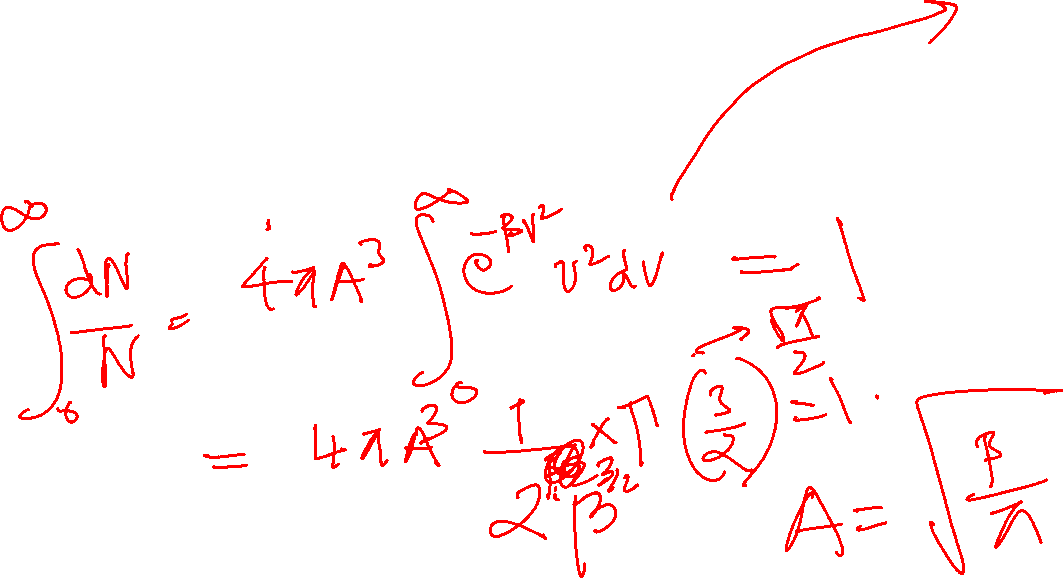 ∫₀^∞ dN/N = 4πA³ ∫₀^∞ e^(-βv²) v² dv = 1
= 4πA³ 1/(2β^(3/2)) × Γ(3/2) = 1. → √π/2
A = √(β/π)